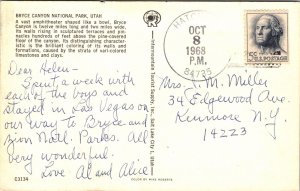 BRYCE CANYON NATIONAL PARK, UTAH
A vast amphitheater shaped like a bowl, Bryce
Canyon is twelve miles long and two miles wide.
Its walls rising in sculptured terraces and pin-
nacles hundreds of feet above the pine-covered
floor of the canyon, its distinguishing character-
istic is the brilliant coloring of its walls and
formations, caused by the strata of vari-colored
limestones and clays.
Dear Helen-
Spent a week with
each of the boys and
stayed in Las Vegas on
our way to Bryce and
Zion Natl. Parks. All
very wonderful.
Love Al and Alice
C3134
COLOR BY MIKE ROBERTS
HATCH
OCT
8
1968
P.M.
84735
U.S. POSTAGE
Mrs. J. M. Miller
34 Edgewood Ave.
Kenmore N.Y.
14223